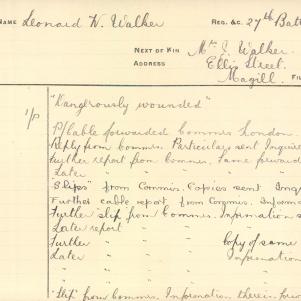 NAME Leonard W. Walker REG. &C. 27th Batt
NEXT OF KIN Walker.
ADDRESS Ellis Street.
Magill. FI
"Dangerously wounded"
P/lable forwarded Commrs London
Reply from Commrs. Particulars sent Inquire
Further report from Commrs. same forward
Later " " " "
"Slips" from Commrs. Copies sent Inq
Further cable report from Commrs. Informa
Further slip from Commrs. Information s
Later report " "
Further " " Copy of same
Later " " Information
" " "
"Slip" from Commrs. Information therein forw